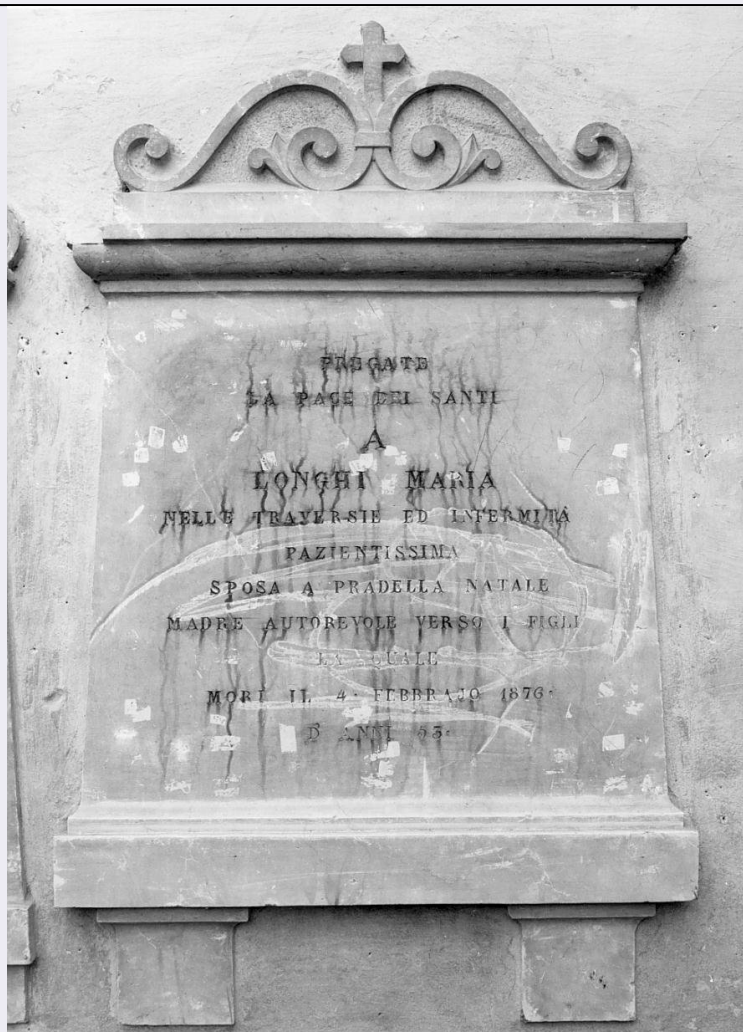 PREGATE
LA PACE DEI SANTI
A
LONGHI MARIA
NELLE TRAVERSIE ED INFERMITÀ
PAZIENTISSIMA
SPOSA A PRADELLA NATALE
MADRE AUTOREVOLE VERSO I FIGLI
LA QUALE
MORÌ IL 4. FEBBRAJO 1876.
D'ANNI 53.